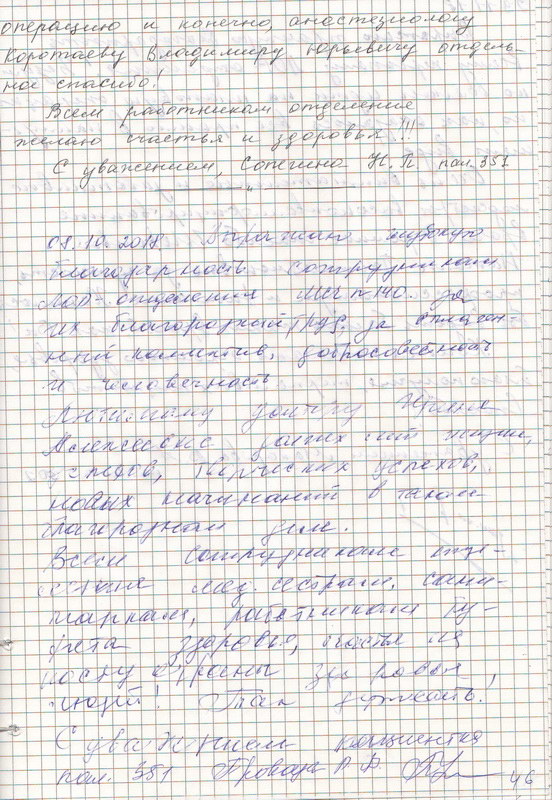 операцию и конечно, анастезиологу
Коротаеву Владимиру Юрьевичу отдель-
ное спасибо!
Всем работникам отделения
желаю счастья и здоровья!!!
С уважением, Сопегина Н. П. пал. 351
09.10.2018. Выражаю глубокую
благодарность сотрудникам
ЛОР-отделения МСЧ №140. за
их благородный труд, за сплочен-
ный коллектив, добросовестность
и человечность
доктору
Алексеевне долгих лет жизни,
успехов, творческих успехов,
новых начинаний в таком
благородном деле.
Всем сотрудникам отде-
ления мед. сестрам, сани-
таркам, работникам бу-
фета здоровья, счастья на
посту охраны здоровья
людей! Так держать!
С уважением пациентка
пал. 351
46